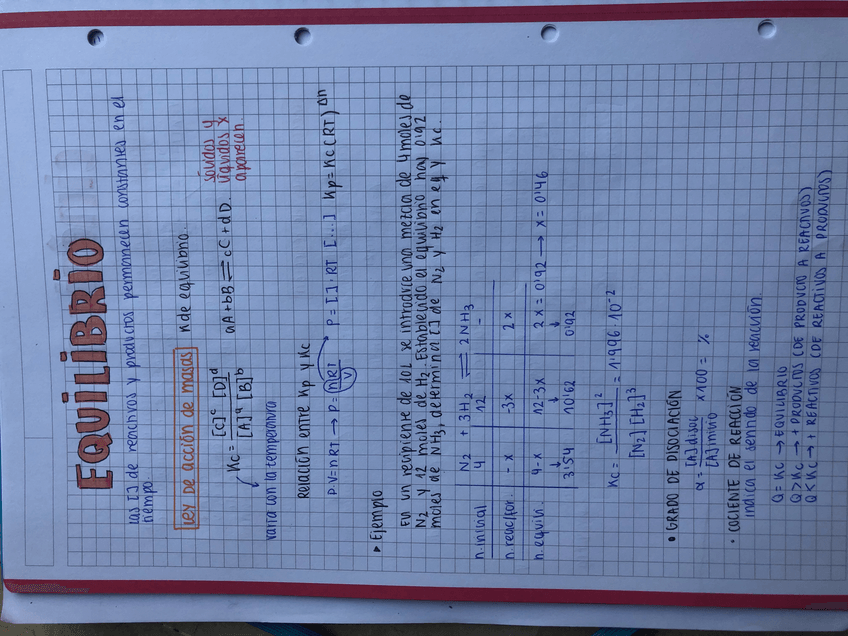 EQUILIBRIO
las [ ] de reactivos y productos permanecen constantes en el
tiempo.
LEY DE acción de masas
K de equilibrio.
Kc = [C]^c [D]^d / [A]^a [B]^b
aA + bB ⇌ cC + dD
sólidos y
líquidos x
aparecen
varía con la temperatura
Relación entre Kp y Kc
PV = nRT → P = nRT/V P = [ ] . RT [...] Kp = Kc (RT)^Δn
▸ Ejemplo
En un recipiente de 10L se introduce una mezcla de 4 moles de
N2 y 12 moles de H2. Establecido el equilibrio hay 0'92
moles de NH3, determina [ ] de N2 y H2 en eq y Kc.
N2 + 3H2 ⇌ 2NH3
n. inicial 4 12 -
n. reac/for. -x -3x 2x
n. equilin. 4-x 12-3x 2x = 0'92 → x = 0'46
3'54 10'62 0'92
Kc = [NH3]^2 / [N2] [H2]^3 = 1'996 · 10^-2
• GRADO DE DISOCIACIÓN
α = [A] disoc / [A] inicio x100 = %
• COCIENTE DE REACCIÓN
indica el sentido de la reacción.
Q = Kc → EQUILIBRIO
Q > Kc → + PRODUCTOS (DE PRODUCTO A REACTIVOS)
Q < Kc → + REACTIVOS (DE REACTIVOS A PRODUCTOS)